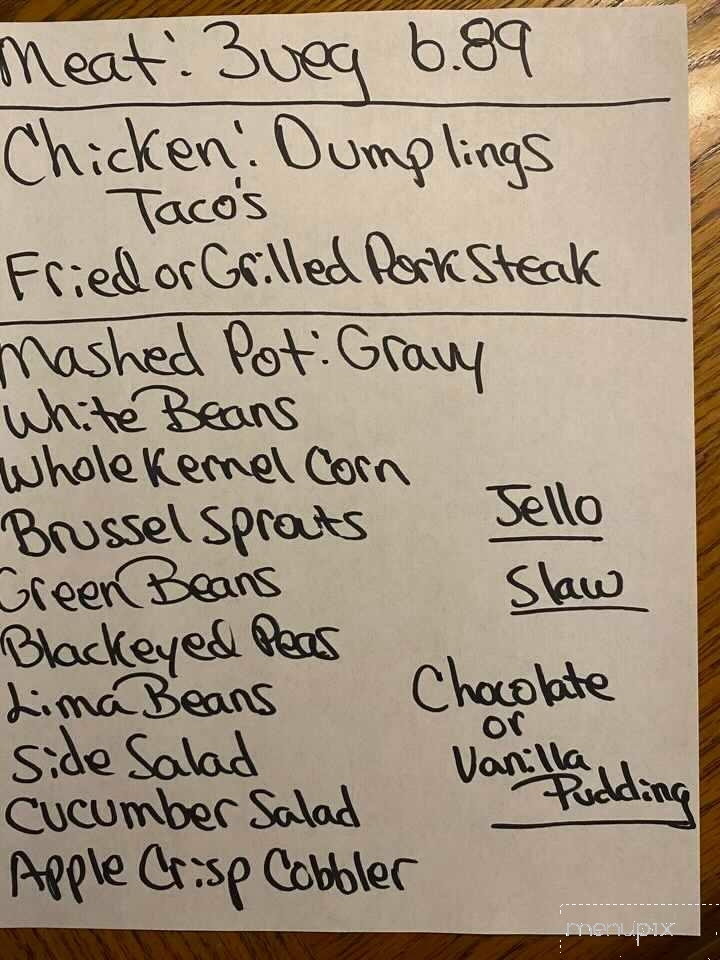 Meat: 3veg 6.89
Chicken: Dumplings
Taco's
Fried or Grilled Pork Steak
Mashed Pot: Gravy
White Beans
Whole Kernel Corn
Brussel Sprouts
Green Beans
Blackeyed Peas
Lima Beans
Side Salad
Cucumber Salad
Apple Crisp Cobbler
Jello
Slaw
Chocolate
or
Vanilla
Pudding
menupix